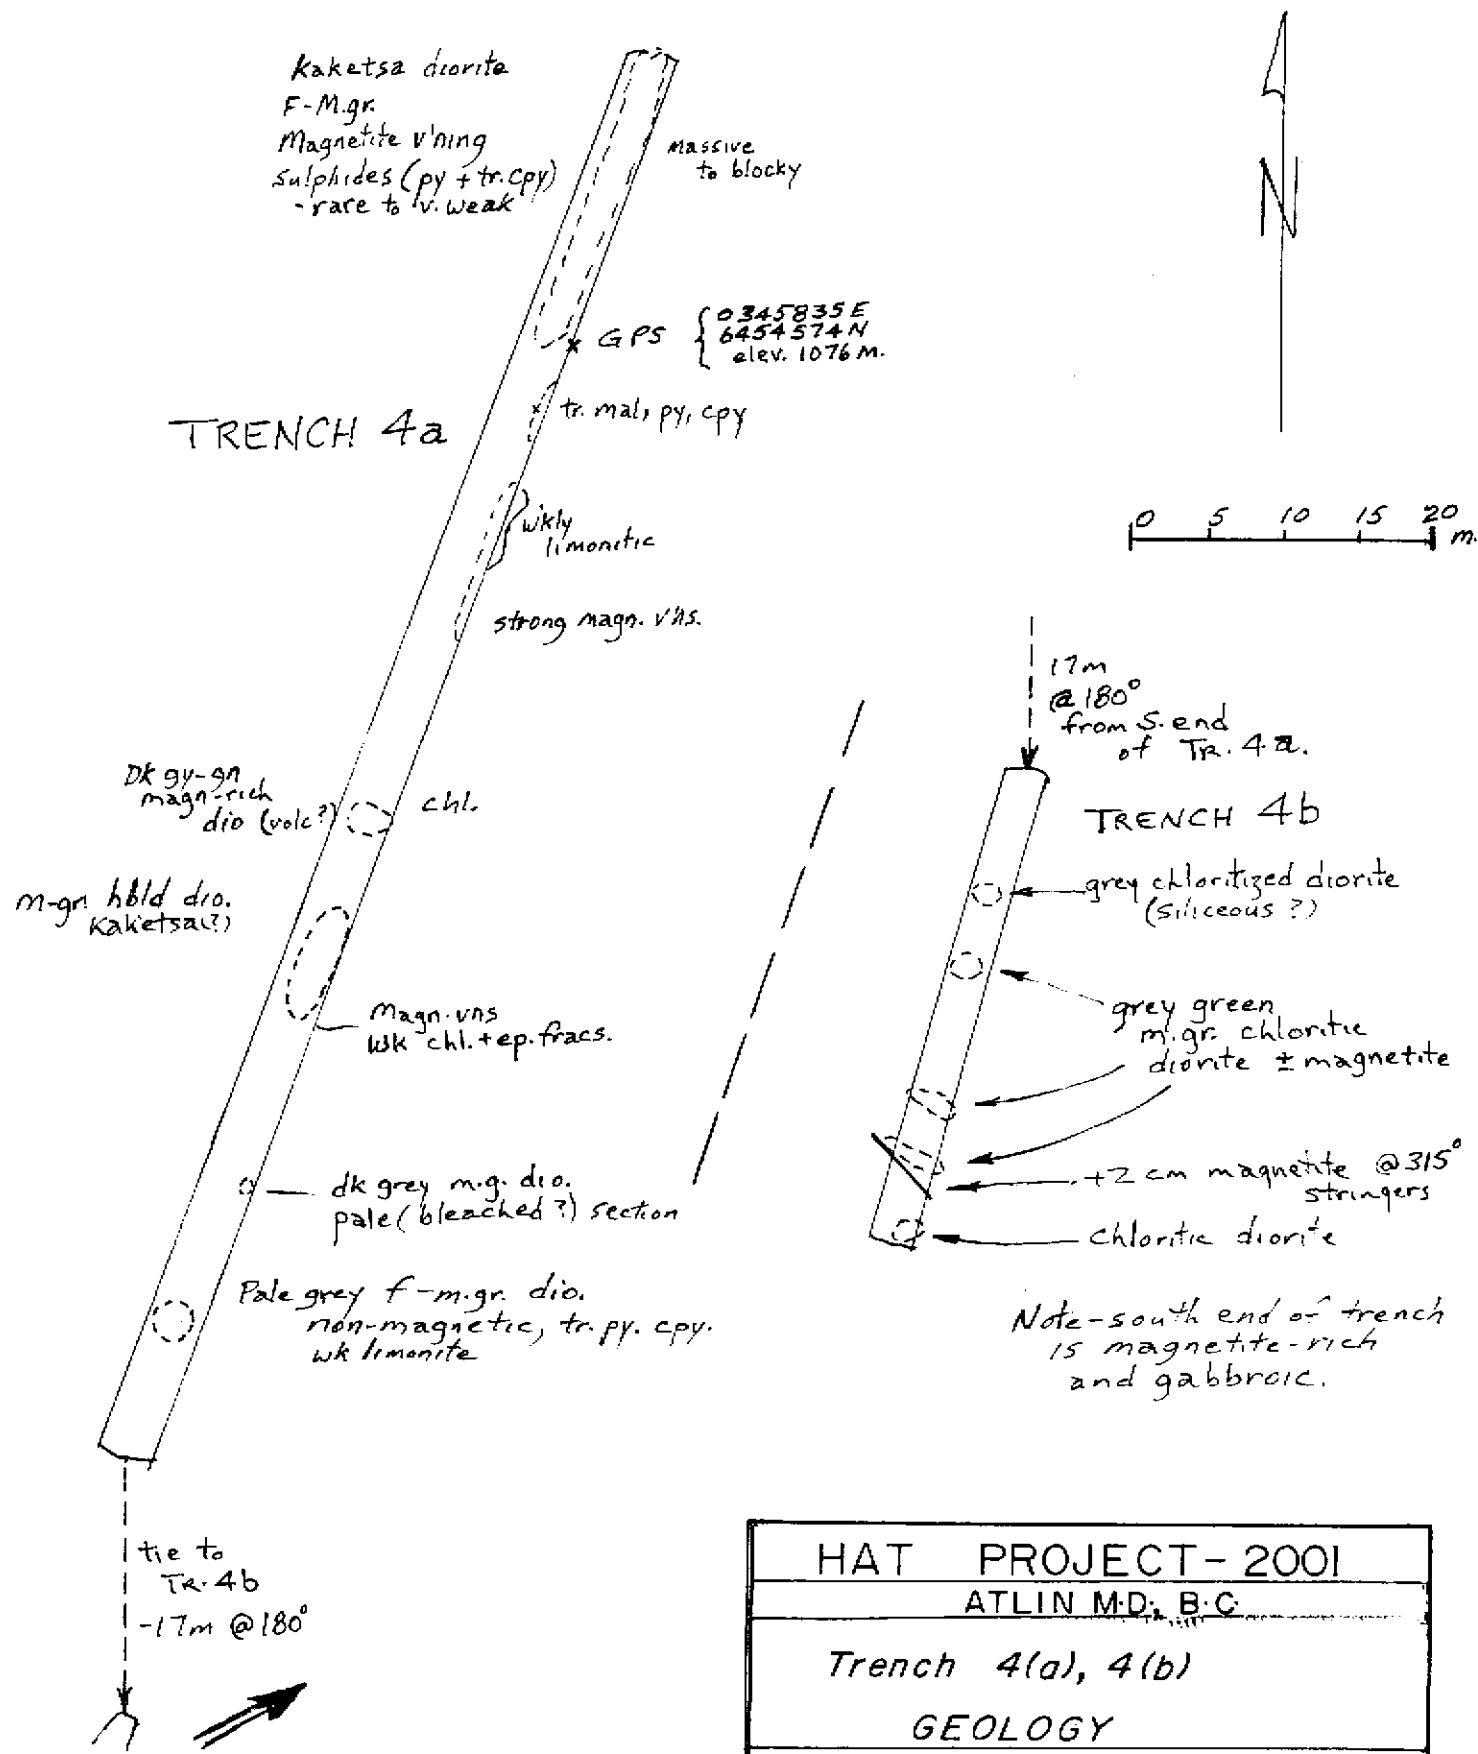 Kaketsa diorite
F-M.gr.
Magnetite v'ning
Sulphides (py + tr. cpy)
- rare to v. weak
Massive
to blocky
N
GPS
0345835E
6454574N
elev. 1076 M.
tr. mal, py, cpy
TRENCH 4a
wkly
limonitic
strong magn. v'ns.
0 5 10 15 20
m.
17m
@ 180°
from S. end
of TR. 4a.
TRENCH 4b
Dk gy-gn
magn-rich
dio (volc?)
chl.
m-gr. hbld dio.
Kaketsa(?)
grey chloritized diorite
(siliceous ?)
Magn. vns
wk chl. + ep. fracs.
grey green
m.gr. chloritic
diorite ± magnetite
dk grey m.g. dio.
pale (bleached ?) section
+2 cm magnetite @ 315°
stringers
Chloritic diorite
Pale grey f-m.gr. dio.
non-magnetic, tr. py. cpy.
wk limonite
Note - south end of trench
is magnetite-rich
and gabbroic.
tie to
TR. 4b
-17m @ 180°
HAT PROJECT - 2001
ATLIN M.D., B.C.
Trench 4(a), 4(b)
GEOLOGY